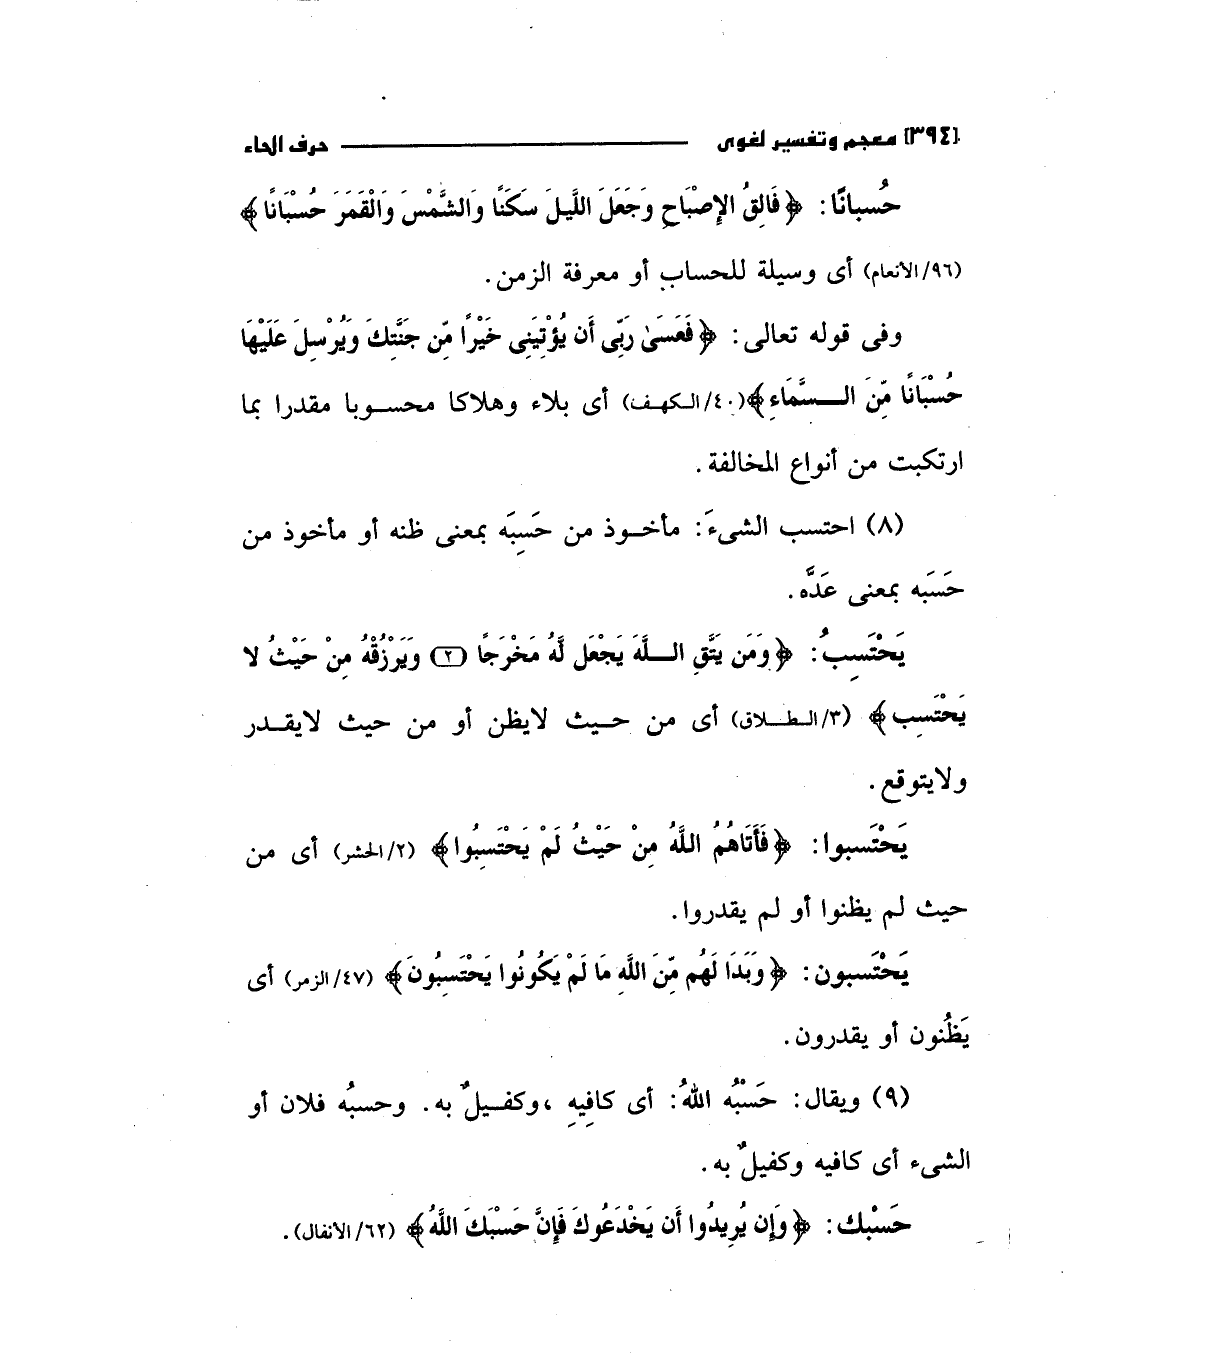 [٣٩٤] معجم وتفسير لغوى حرف الحاء
حُسبانًا: ﴿فَالِقُ الإِصْبَاحِ وَجَعَلَ اللَّيلَ سَكَنًا وَالشَّمْسَ وَالْقَمَرَ حُسْبَانًا﴾
(٩٦/الأنعام) أى وسيلة للحساب أو معرفة الزمن.
وفى قوله تعالى: ﴿فَعَسَىٰ رَبِّى أَن يُؤْتِيَنِى خَيْرًا مِّن جَنَّتِكَ وَيُرْسِلَ عَلَيْهَا
حُسْبَانًا مِّنَ السَّمَاءِ﴾(٤٠/الكهف) أى بلاء وهلاكا محسوبا مقدرا بما
ارتكبت من أنواع المخالفة.
(٨) احتسب الشىءَ: مأخوذ من حَسِبَه بمعنى ظنه أو مأخوذ من
حَسَبَه بمعنى عَدَّه.
يَحْتَسِبُ: ﴿وَمَن يَتَّقِ اللَّهَ يَجْعَل لَّهُ مَخْرَجًا (٢) وَيَرْزُقْهُ مِنْ حَيْثُ لا
يَحْتَسِب﴾ (٣/الطلاق) أى من حيث لايظن أو من حيث لايقدر
ولايتوقع.
يَحْتَسبوا: ﴿فَأَتَاهُمُ اللَّهُ مِنْ حَيْثُ لَمْ يَحْتَسِبُوا﴾ (٢/الحشر) أى من
حيث لم يظنوا أو لم يقدروا.
يَحْتَسبون: ﴿وَبَدَا لَهُم مِّنَ اللَّهِ مَا لَمْ يَكُونُوا يَحْتَسِبُونَ﴾ (٤٧/الزمر) أى
يَظُنون أو يقدرون.
(٩) ويقال: حَسْبُه اللهُ: أى كافِيهِ ،وكفيلٌ به. وحسبُه فلان أو
الشىء أى كافيه وكفيلٌ به.
حَسْبك: ﴿وَإِن يُرِيدُوا أَن يَخْدَعُوكَ فَإِنَّ حَسْبَكَ اللَّهُ﴾ (٦٢/الأنفال).